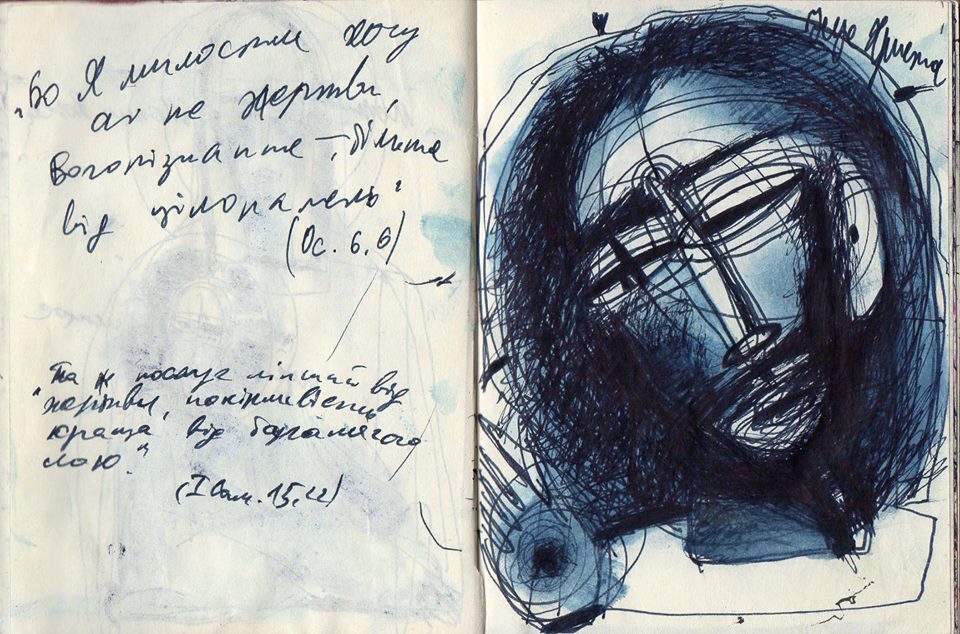 „Бо Я милости хочу
а не жертви,
Богопізнання –, більше
від цілопалень“
(Ос. 6,6)
„Та ж послух ліпший від
жертви, покірливість
краща від баранячого
лою.“
(I Сам. 15,22)
лице Христа